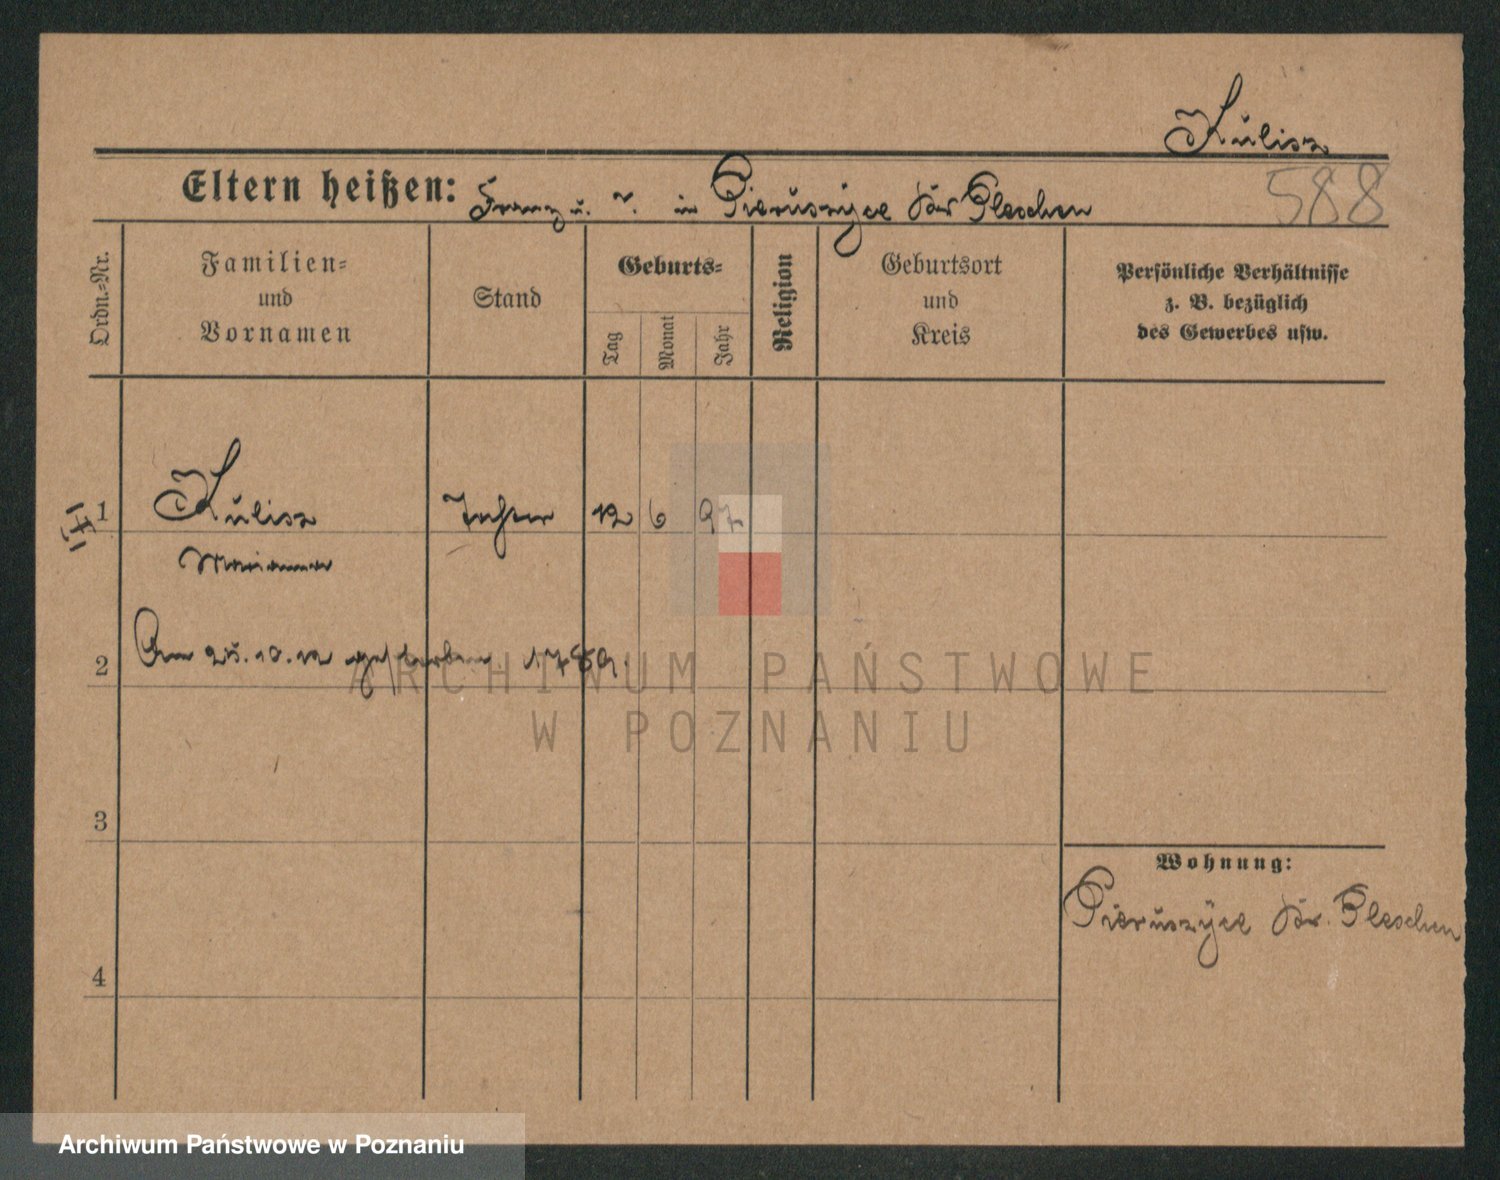 Kulisz
588
Eltern heißen: Franz u. ?. in Pieruszyce Kr. Pleschen
Ordn.-Nr.
Familien-
und
Vornamen
Stand
Geburts-
Tag
Monat
Jahr
Religion
Geburtsort
und
Kreis
Persönliche Verhältnisse
z. B. bezüglich
des Gewerbes usw.
1
Kulisz Tochter 12 6 97
Marianna
2
Am 25.10.12 gestorben 1789.
3
4
Wohnung:
Pieruszyce Kr. Pleschen
ARCHIWUM PAŃSTWOWE
W POZNANIU
Archiwum Państwowe w Poznaniu